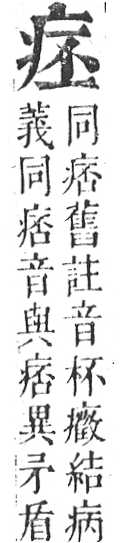 㾦
同痞舊註音杯癥結病
義同痞音與痞異矛盾